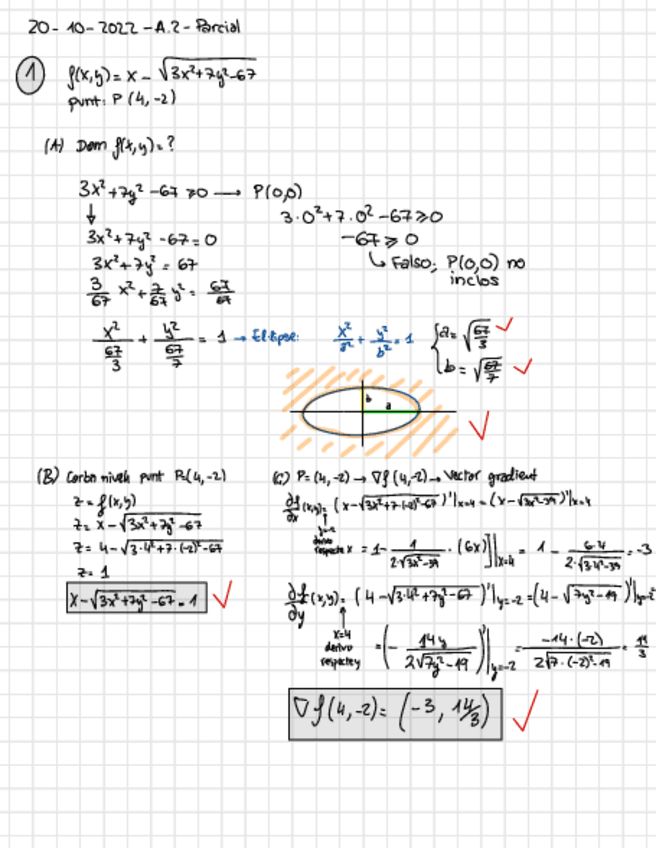 20-10-2022-A.2-Parcial
1 f(x,y)= x - √3x²+7y²-67
punt: P(4,-2)
(A) Dom f(x,y)=?
3x²+7y²-67≥0 → P(0,0)
↓ 3·0²+7·0²-67≥0
3x²+7y²-67=0 -67≥0
3x²+7y²=67 ↳ Falso; P(0,0) no
inclos
3/67 x² + 7/67 y² = 67/67
x²/(67/3) + y²/(67/7) = 1 → Elipse: x²/a² + y²/b² = 1 { a=√67/3 ✓
b=√67/7 ✓
b
a
✓
(B) Corba nivell punt P=(4,-2)
z=f(x,y)
z=x-√3x²+7y²-67
z=4-√3·4²+7·(-2)²-67
z=1
x-√3x²+7y²-67=1 ✓
(C) P=(4,-2) → ∇f(4,-2) → Vector gradient
∂f/∂x (x,y)= (x-√3x²+7·(-2)²-67)'|x=4 = (x-√3x²-39)'|x=4
y=-2
derivo
respecte x = 1- 1/(2√3x²-39) · (6x)]|x=4 = 1 - 6·4/(2·√3·4²-39) = -3
∂f/∂y (x,y)= (4-√3·4²+7y²-67)'|y=-2 = (4-√7y²-19)'|y=-2
x=4
derivo
respecte y = (- 14y/(2√7y²-19))|y=-2 = -14·(-2)/(2√7·(-2)²-19) = 14/3
∇f(4,-2)= (-3, 14/3) ✓